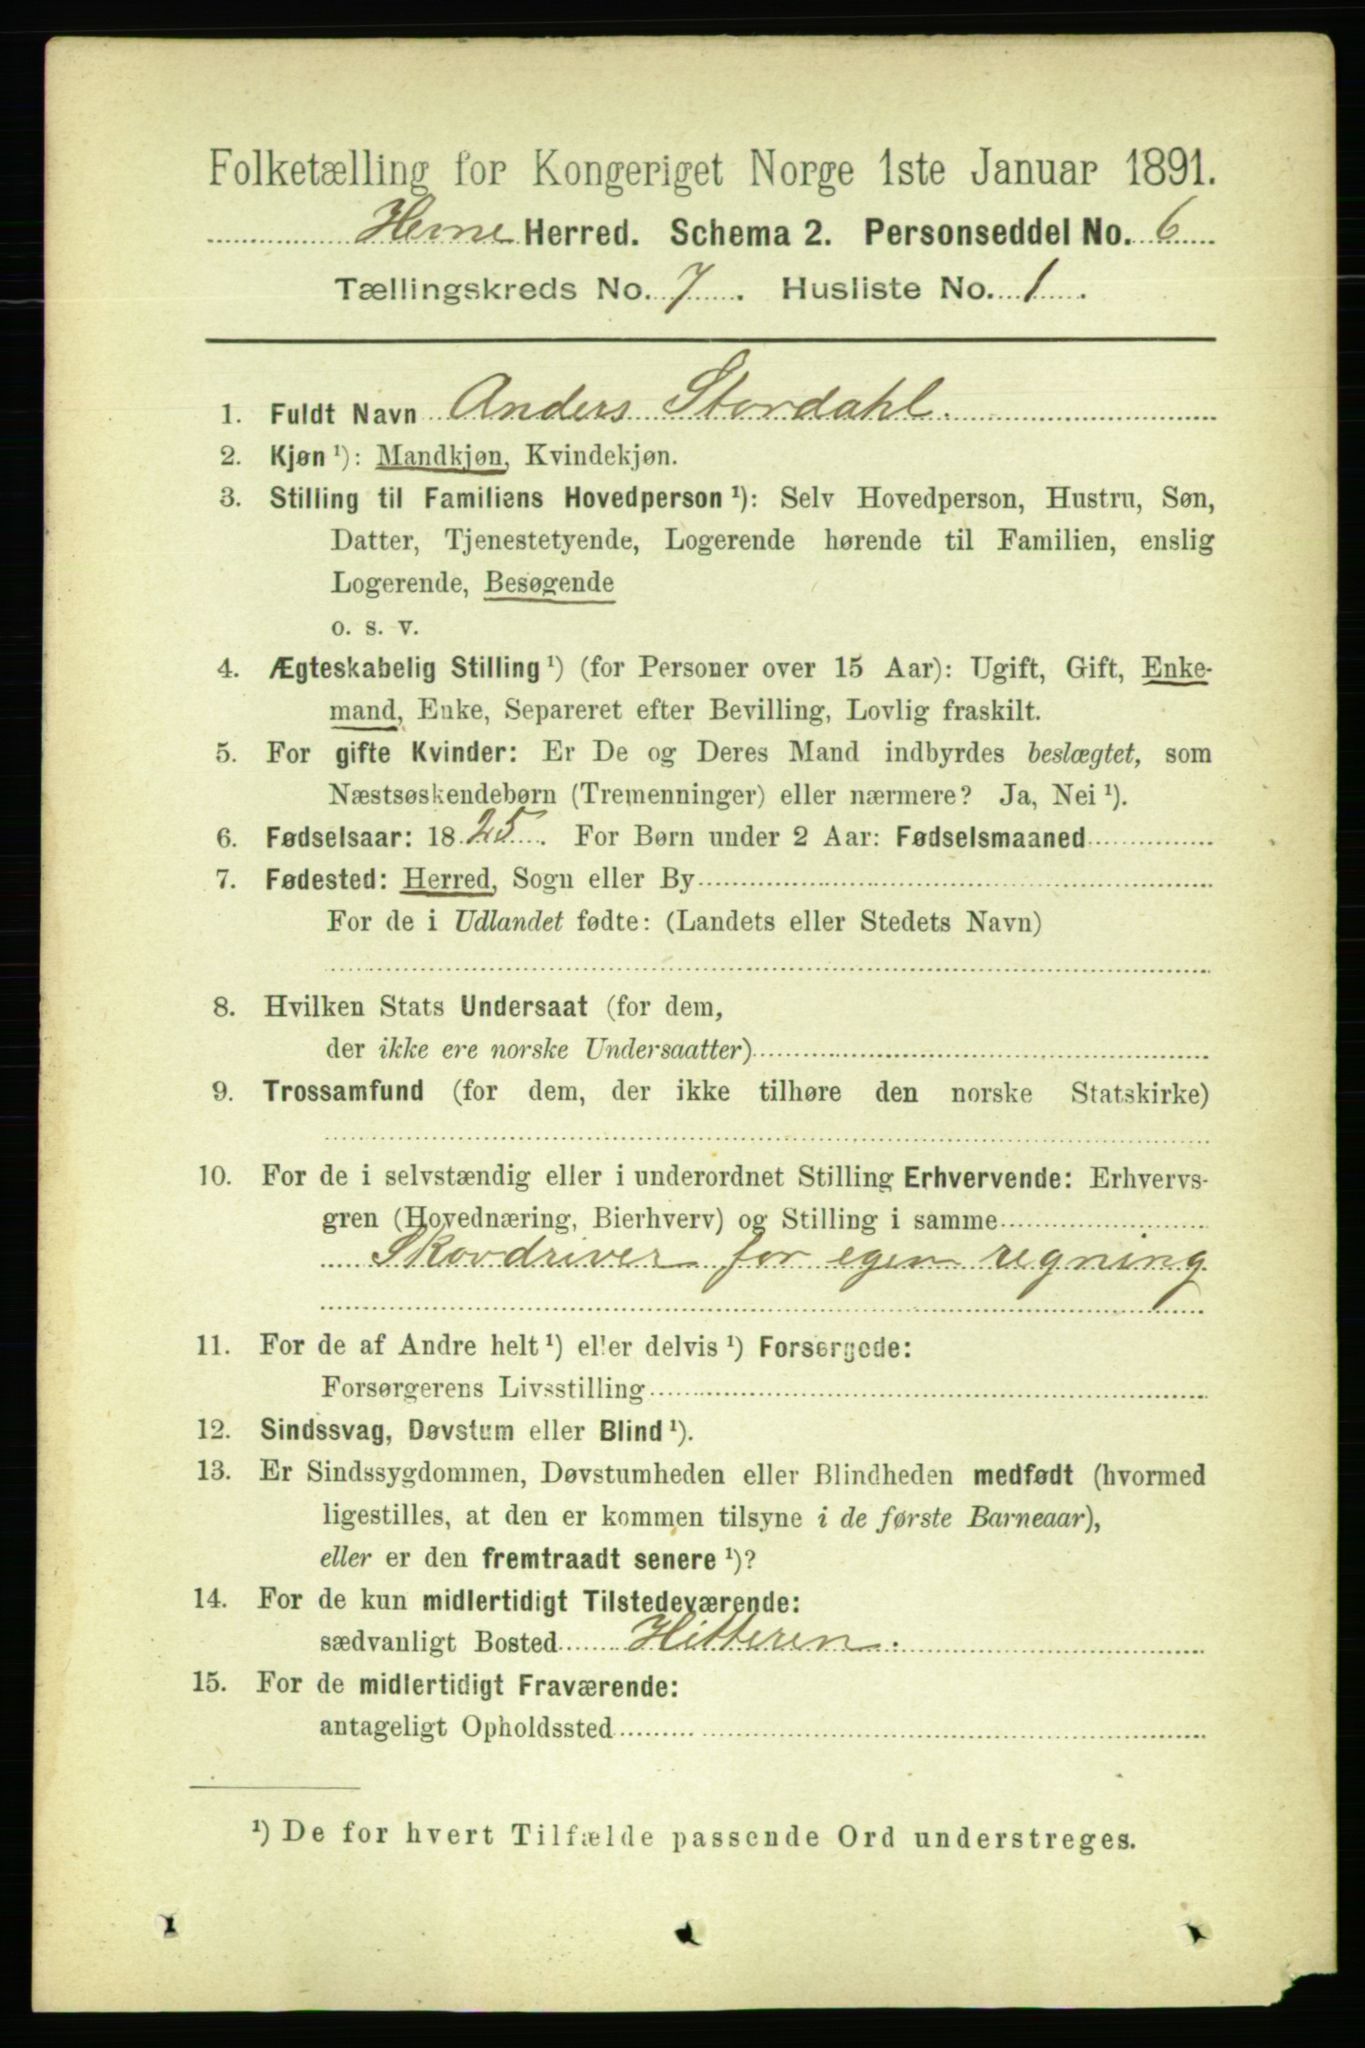 Folketælling for Kongeriget Norge 1ste Januar 1891.
Hevne Herred. Schema 2. Personseddel No. 6
Tællingskreds No. 7. Husliste No. 1.
1. Fuldt Navn Anders Stordahl.
2. Kjøn ¹): Mandkjøn, Kvindekjøn.
3. Stilling til Familiens Hovedperson ¹): Selv Hovedperson, Hustru, Søn,
Datter, Tjenestetyende, Logerende hørende til Familien, enslig
Logerende, Besøgende
o. s. v.
4. Ægteskabelig Stilling ¹) (for Personer over 15 Aar): Ugift, Gift, Enke-
mand, Enke, Separeret efter Bevilling, Lovlig fraskilt.
5. For gifte Kvinder: Er De og Deres Mand indbyrdes beslægtet, som
Næstsøskendebørn (Tremenninger) eller nærmere? Ja, Nei ¹).
6. Fødselsaar: 1825. For Børn under 2 Aar: Fødselsmaaned
7. Fødested: Herred, Sogn eller By
For de i Udlandet fødte: (Landets eller Stedets Navn)
8. Hvilken Stats Undersaat (for dem,
der ikke ere norske Undersaatter)
9. Trossamfund (for dem, der ikke tilhøre den norske Statskirke)
10. For de i selvstændig eller i underordnet Stilling Erhvervende: Erhvervs-
gren (Hovednæring, Bierhverv) og Stilling i samme
Skovdriver for egen regning
11. For de af Andre helt ¹) eller delvis ¹) Forsørgede:
Forsørgerens Livsstilling
12. Sindssvag, Døvstum eller Blind ¹).
13. Er Sindssygdommen, Døvstumheden eller Blindheden medfødt (hvormed
ligestilles, at den er kommen tilsyne i de første Barneaar),
eller er den fremtraadt senere ¹)?
14. For de kun midlertidigt Tilstedeværende:
sædvanligt Bosted Hitteren.
15. For de midlertidigt Fraværende:
antageligt Opholdssted
¹) De for hvert Tilfælde passende Ord understreges.